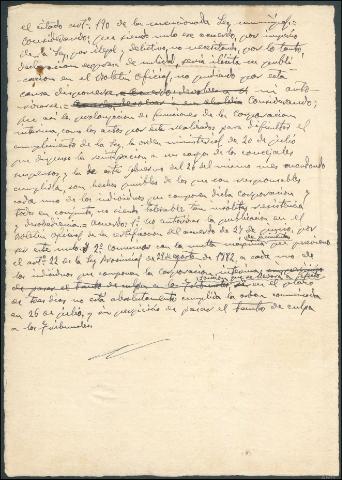 el citado artº. 190 de la mencionada Ley municipal =
Considerando: que siendo nulo ese acuerdo, por ministerio
de la Ley, por ilegal y delictivo, no necesitando, por lo tanto
declaracion expresa de nulidad, seria ilicita su publi-
cacion en el Boletin Oficial, no pudiendo por esta
causa disponerse mi auto-
ridad Considerando;
que asi la prolongacion de funciones de la Corporacion
interina, como los actos por esta realizados para dificultar el
cumplimiento de la Ley, la orden ministerial de 20 de julio
que dispuso la reintegracion a sus cargos de los concejales
suspensos, y la de este Gobierno del 26 del mismo mes mandando
cumplirla, son hechos punibles de los que son responsables
cada uno de los individuos que componen dicha Corporacion y
toda en conjunto, no siendo tolerable tan insolita resistencia
y desobediencia = Acuerdo: 1º no autorizar la publicacion en el
Boletin Oficial de la certificacion del acuerdo de 27 de junio, por
ser este nulo y 2º Conminar con la multa maxima que previene
el artº 22 de la Ley Provincial de 29 de agosto de 1882, a cada uno de
los individuos que componen la Corporacion interina
de pasar el tanto de culpa a los Tribunales si en el plazo
de tres dias no está absolutamente cumplida la orden comunicada
en 26 de julio, y sin perjuicio de pasar el tanto de culpa
a los Tribunales